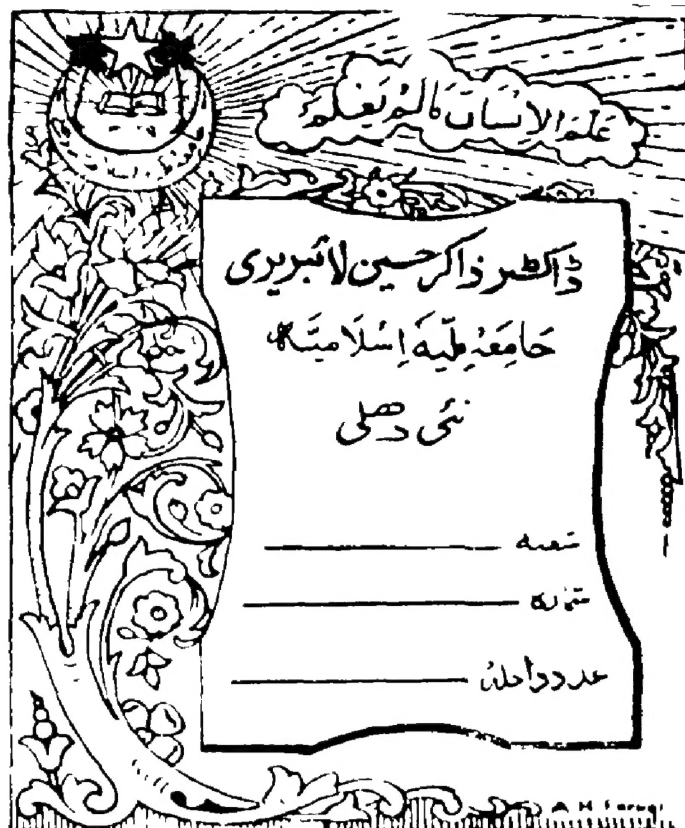 عَلَّمَ الْإِنْسَانَ مَا لَمْ يَعْلَمْ
ڈاکٹر ذاکر حسین لائبریری
جَامِعَہ مِلّیَہ اِسْلَامیَّہ
نئی دھلی
شعبہ
شمارہ
عدد داخلہ
A H Faruqi